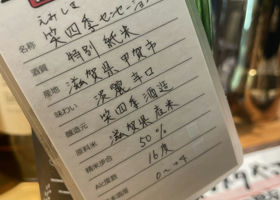 えみしき
名称 笑四季センセーション
酒質 特別純米
産地 滋賀県甲賀市
味わい 淡麗辛口
醸造元 笑四季酒造
原料米 滋賀県産米
精米歩合 50%
Alc度数 16度
日本酒度